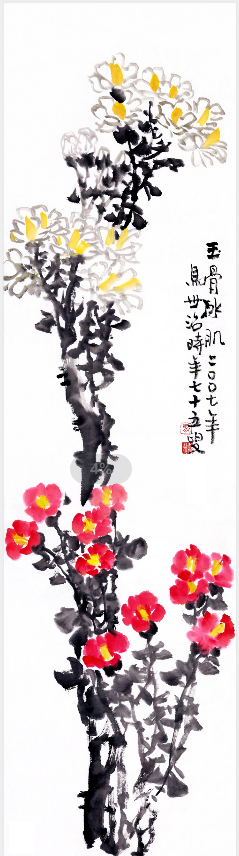 玉骨冰肌二〇〇七年
息世治時年七十五叟